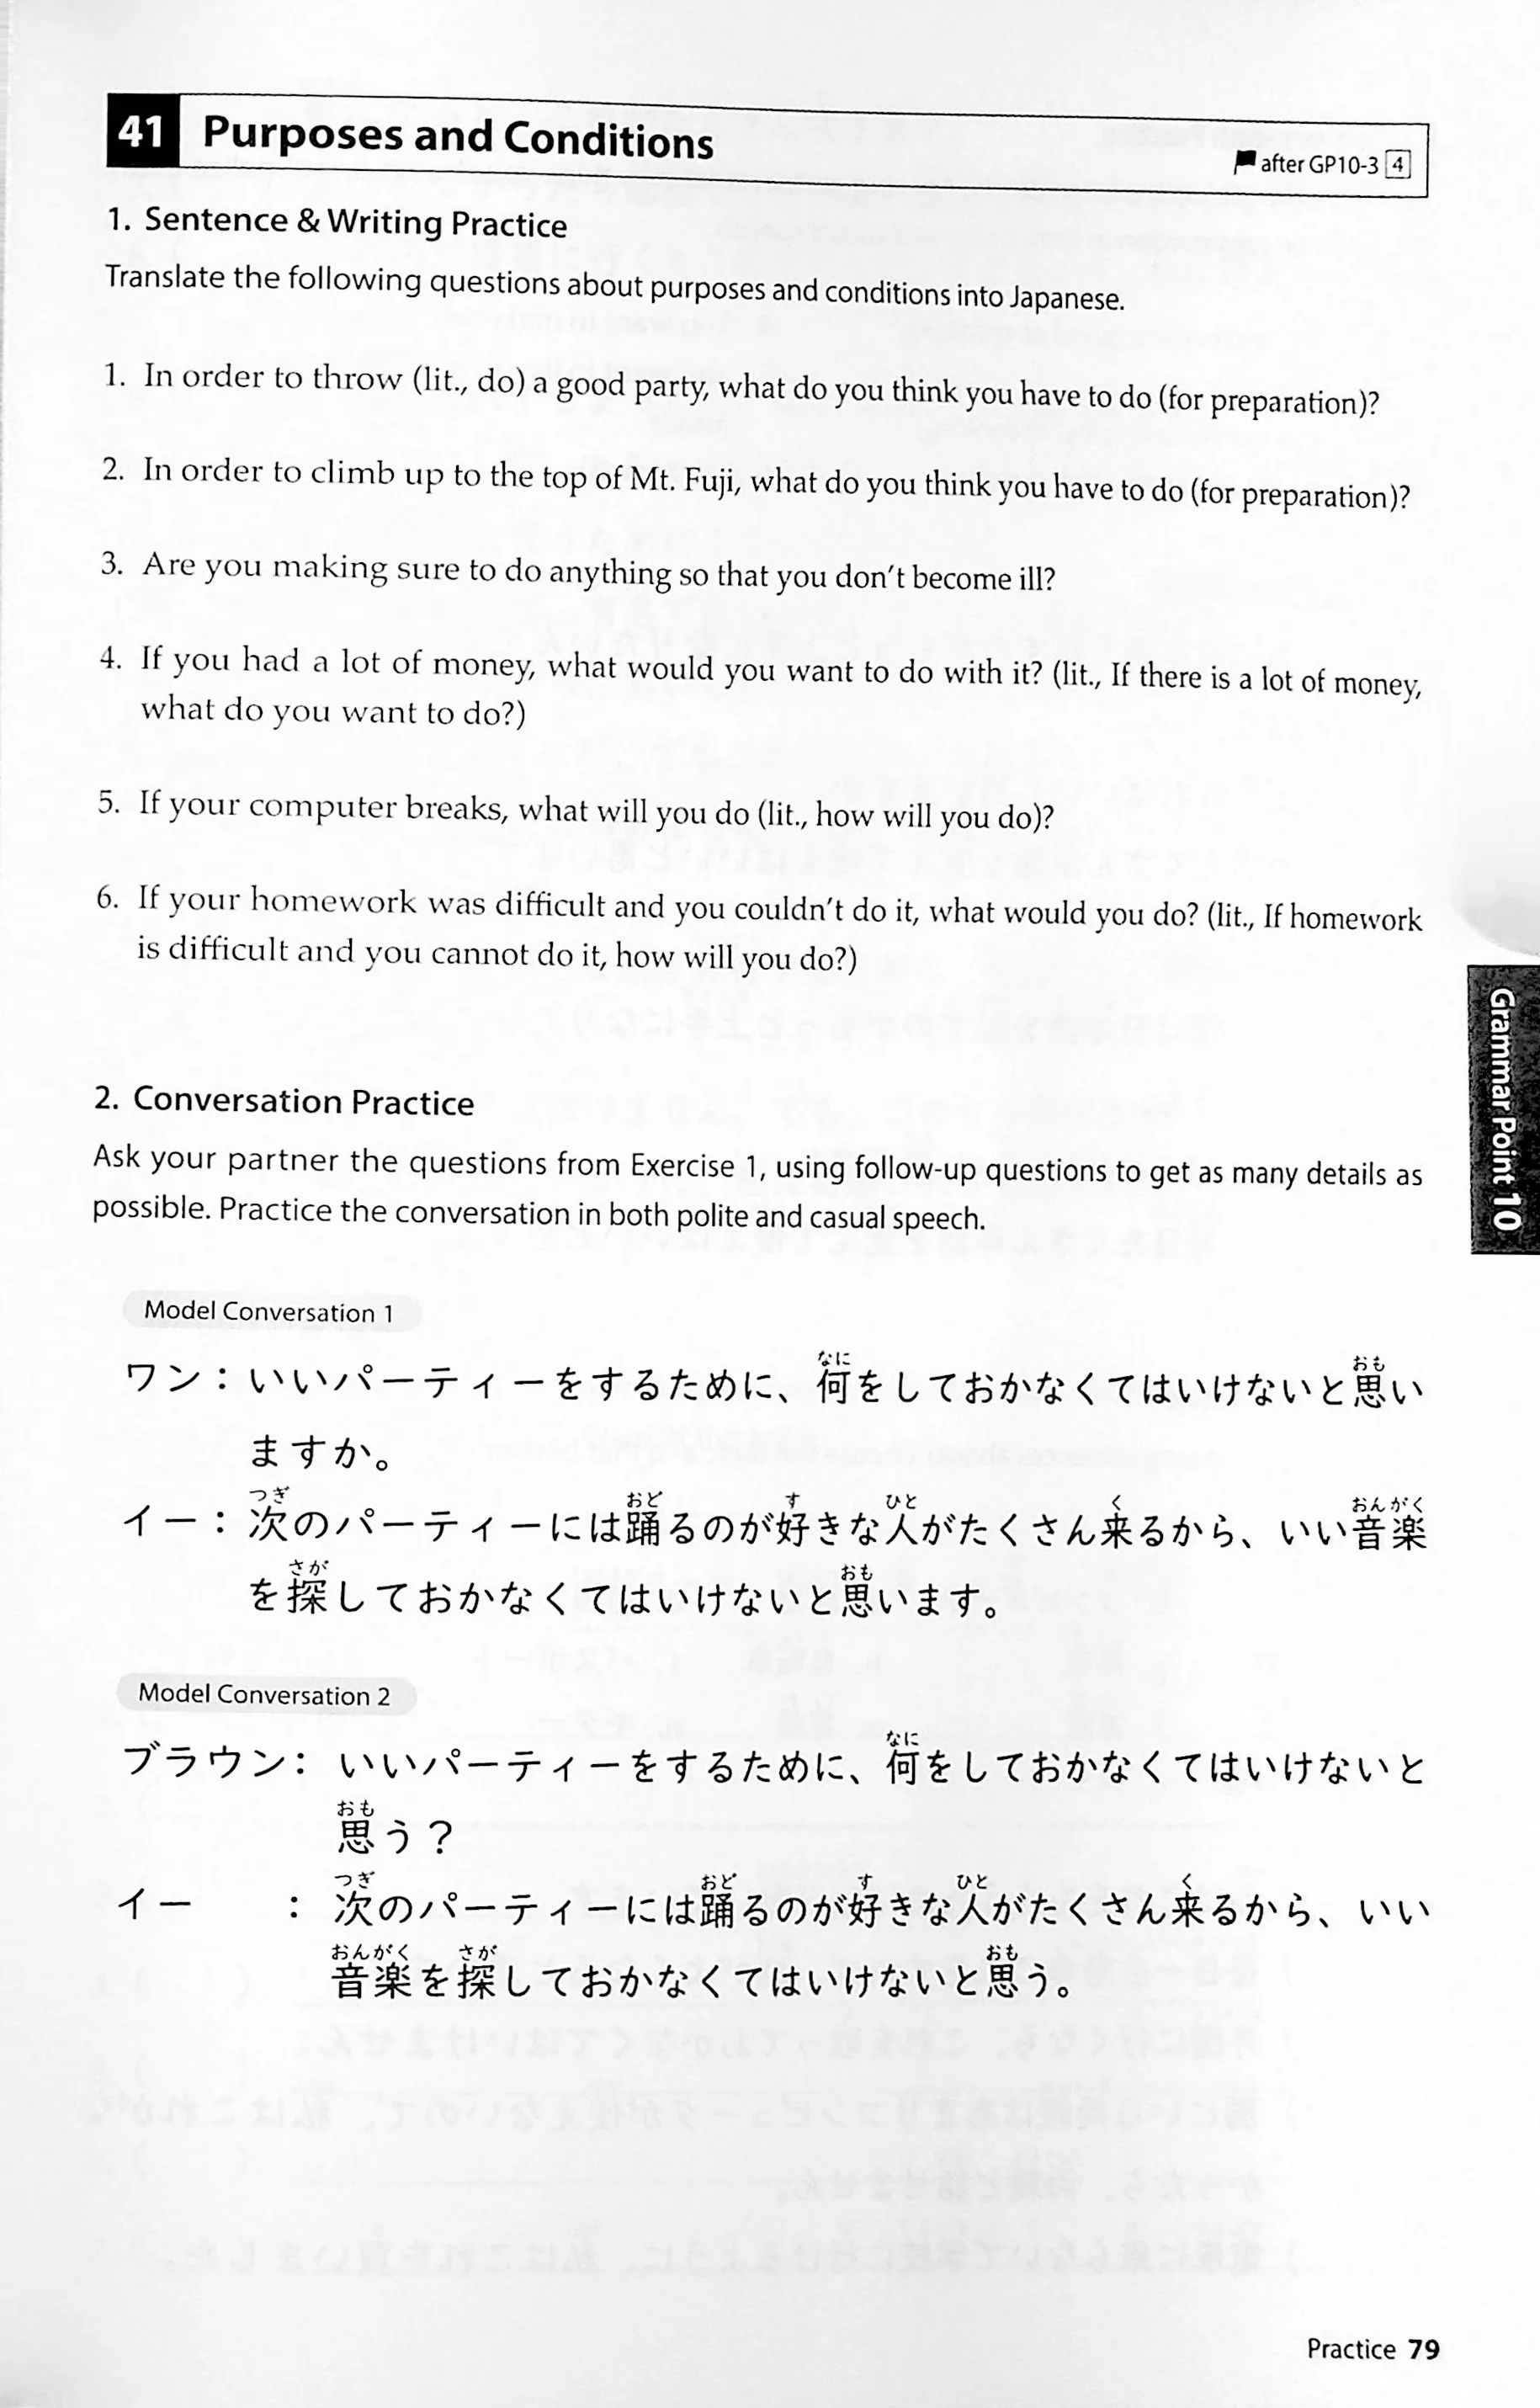 41 Purposes and Conditions
after GP10-3 4
1. Sentence & Writing Practice
Translate the following questions about purposes and conditions into Japanese.
1. In order to throw (lit., do) a good party, what do you think you have to do (for preparation)?
2. In order to climb up to the top of Mt. Fuji, what do you think you have to do (for preparation)?
3. Are you making sure to do anything so that you don't become ill?
4. If you had a lot of money, what would you want to do with it? (lit., If there is a lot of money,
what do you want to do?)
5. If your computer breaks, what will you do (lit., how will you do)?
6. If your homework was difficult and you couldn't do it, what would you do? (lit., If homework
is difficult and you cannot do it, how will you do?)
Grammar Point 10
2. Conversation Practice
Ask your partner the questions from Exercise 1, using follow-up questions to get as many details as
possible. Practice the conversation in both polite and casual speech.
Model Conversation 1
なに おも
ワン：いいパーティーをするために、何をしておかなくてはいけないと思い
ますか。
つぎ おど す ひと く おんがく
イー：次のパーティーには踊るのが好きな人がたくさん来るから、いい音楽
さが おも
を探しておかなくてはいけないと思います。
Model Conversation 2
なに
ブラウン：いいパーティーをするために、何をしておかなくてはいけないと
おも
思う？
つぎ おど す ひと く
イー　　：次のパーティーには踊るのが好きな人がたくさん来るから、いい
おんがく さが おも
音楽を探しておかなくてはいけないと思う。
Practice 79